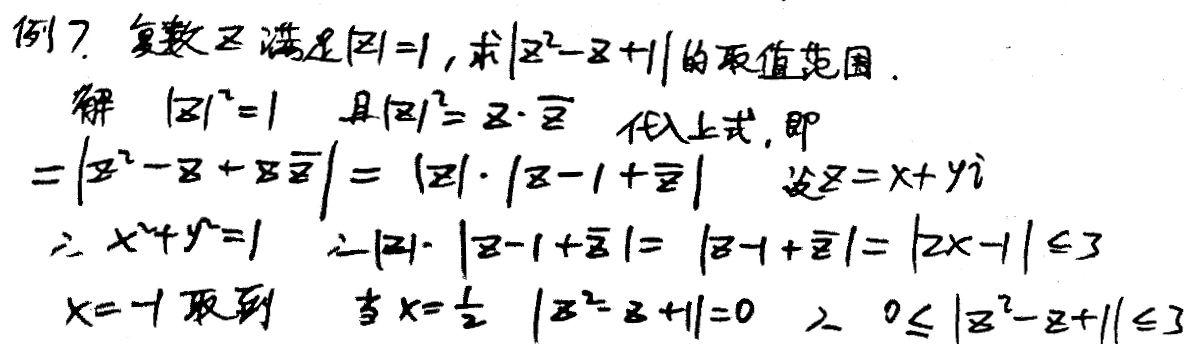 例7. 复数z满足|z|=1,求|z²-z+1|的取值范围.
解 |z|²=1 且|z|²=z·z̅ 代入上式,即
=|z²-z+zz̅|=|z|·|z-1+z̅| 设z=x+yi
∴ x²+y²=1 ∴|z|·|z-1+z̅|=|z-1+z̅|=|2x-1|≤3
x=-1取到 当x=½ |z²-z+1|=0 ∴ 0≤|z²-z+1|≤3